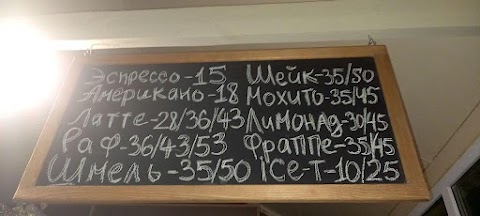 Эспрессо-15 Шейк-35/50
Американо-18 Мохито-35/45
Латте-28/36/43 Лимонад-30/45
Раф-36/43/53 Фраппе-35/45
Шмель-35/50 ice-T-10/25